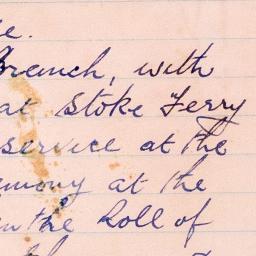 Branch, with
at Stoke Ferry
service at the
at the
the Roll of